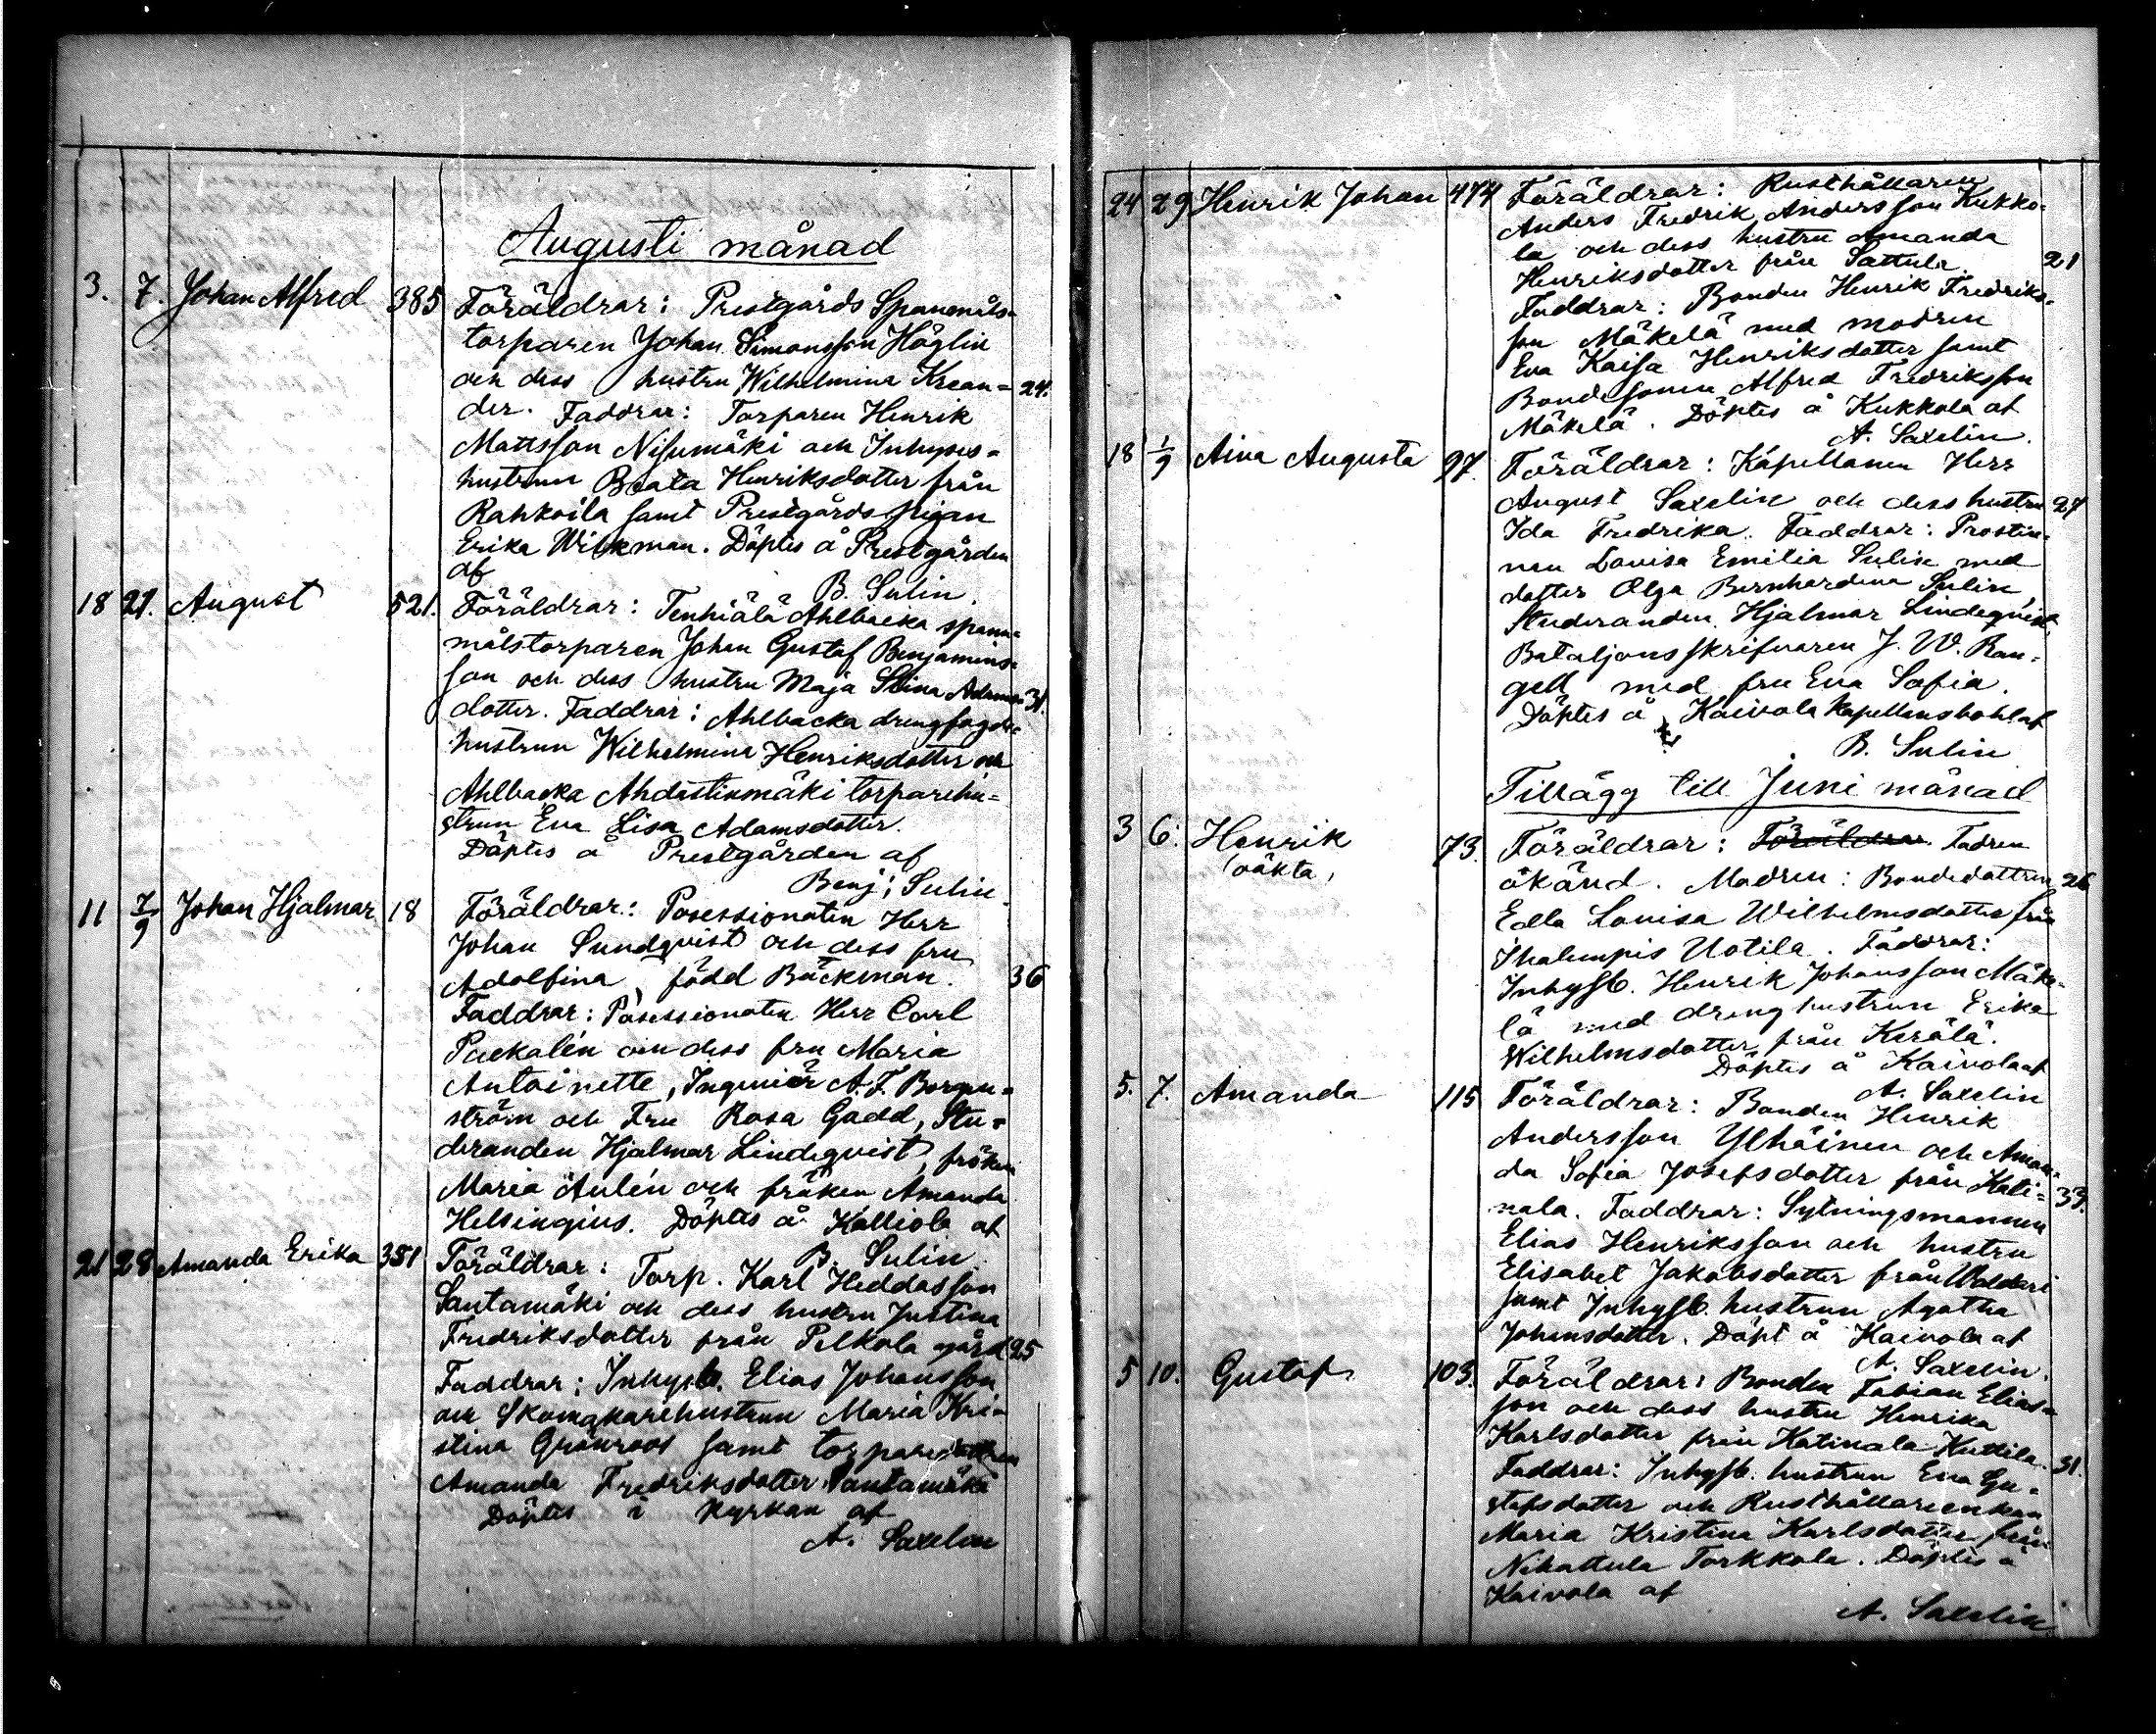 Augusti månad
3. 7. Johan Alfred 385 Föräldrar: Prestgårds Spanmåls-
torparen Johan Simonsson Höglin
och dess hustru Wilhelmina Krean- 24.
der. Faddrar: Torparen Henrik
Mattsson Nisumäki och Inhyses-
hustrun Beata Henriksdotter från
Rahkoila samt Prestgårds pigan
Erika Wikman. Döptes å Prestgården
af
B. Sulin.
18 21. August 521. Föräldrar: Tenhiälä Ahlbacka spann-
målstorparen Johan Gustaf Benjamins-
son och dess hustru Maja Stina Adams- 31.
dotter. Faddrar: Ahlbacka drengfogde-
hustrun Wilhelmina Henriksdotter och
Ahlbacka Ahdistinmäki torparehu-
strun Eva Lisa Adamsdotter.
Döptes å Prestgården af
Benj: Sulin.
11 7/9 Johan Hjalmar 18 Föräldrar: Posessionaten Herr
Johan Sundqvist och dess fru
Adolfina, född Bäckman. 36
Faddrar: Posessionaten Herr Carl
Packalén och dess fru Maria
Antoinette, Ingeniör A. F. Borgen-
ström och Fru Rosa Gadd, Stu-
deranden Hjalmar Lindeqvist, fröken
Maria Aulén och fröken Amanda
Helsingius. Döptes å Kalliola af
B. Sulin
21 28 Amanda Erika 351 Föräldrar: Torp. Karl Heddasson
Santamäki och dess hustru Justina
Fredriksdotter från Pelkola gård 25
Faddrar: Inhysb. Elias Johansson
och Skomakarehustrun Maria Kri-
stina Grönroos samt torparedottren
Amanda Fredriksdotter Santamäki
Döptes i Kyrkan af
A. Saxelin
24 29 Henrik Johan 474 Föräldrar: Rusthållaren
Anders Fredrik Andersson Kukko-
la och dess hustru Amanda
Henriksdotter från Sattula. 21
Faddrar: Bonden Henrik Fredriks-
son Mäkelä med modren
Eva Kaisa Henriksdotter samt
Bondesonen Alfred Fredriksson
Mäkelä. Döptes å Kukkola af
A. Saxelin.
18 1/9 Aina Augusta 97. Föräldrar: Kapellanen Herr
August Saxelin och dess hustru 27
Ida Fredrika. Faddrar: Prostin-
nan Lovisa Emilia Sulin med
dotter Olga Bernhardina Sulin,
Studeranden Hjalmar Lindeqvist,
Bataljonsskrifvaren J. W. Ran-
gell med fru Eva Sofia.
Döptes å Kaivola Kapellansbohl af
B. Sulin
Tillägg till Juni månad
3 6. Henrik 73. Föräldrar: Föräldrar Fadren
(oäkta) okänd. Modren: Bondedottren 26
Edla Lovisa Wilhelmsdotter från
Ihalempis Uotila. Faddrar:
Inhysb. Henrik Johansson Mäke-
lä med dreng hustrun Erika
Wilhelmsdotter från Kerälä.
Döptes å Kaivola af
A. Saxelin
5. 7. Amanda 115 Föräldrar: Bonden Henrik
Andersson Ylhäinen och Aman-
da Sofia Josefsdotter från Kati- 33.
nala. Faddrar: Sytningsmannen
Elias Henriksson och hustru
Elisabet Jakobsdotter från
samt Inhysb. hustrun Agatha
Johansdotter. Döpt å Kaivola af
A. Saxelin.
5 10. Gustaf 103. Föräldrar: Bonden Fabian Elias-
son och dess hustru Henrika
Karlsdotter från Katinala Kuttila. 31.
Faddrar: Inhysb. hustrun Eva Gu-
stafsdotter och Rusthållareenkan
Maria Kristina Karlsdotter från
Nihattula Torkkola. Döptes å
Kaivola af
A. Saxelin